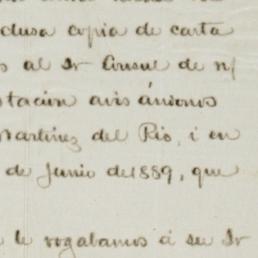 clusa copia de carta
s al Sr Consul de n/
stacion avisándonos
Martinez del Rio, i en
de Junio de 1889, que
le rogabamos á su Sr